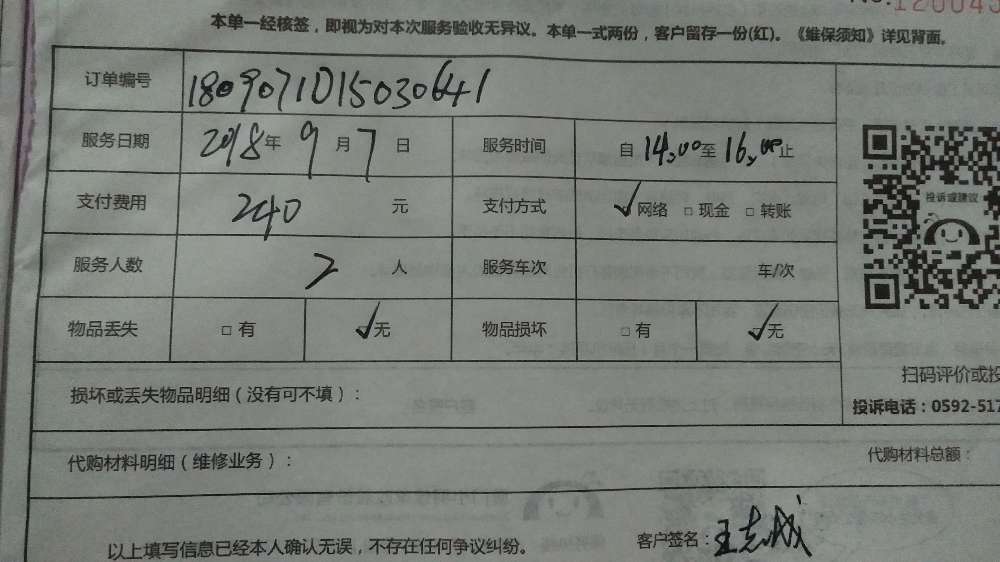 No.120045
本单一经核签，即视为对本次服务验收无异议。本单一式两份，客户留存一份(红)。《维保须知》详见背面。
订单编号 180907101503064 1
服务日期 2018年 9月 7日 服务时间 自 14:00至 16:00止
支付费用 240 元 支付方式 ✓网络 □ 现金 □ 转账
服务人数 2 人 服务车次 车/次
物品丢失 □ 有 ✓无 物品损坏 □ 有 ✓无
投诉或建议
损坏或丢失物品明细（没有可不填）：
扫码评价或投
投诉电话：0592-517
代购材料明细（维修业务）：
代购材料总额：
以上填写信息已经本人确认无误，不存在任何争议纠纷。
客户签名：王志成